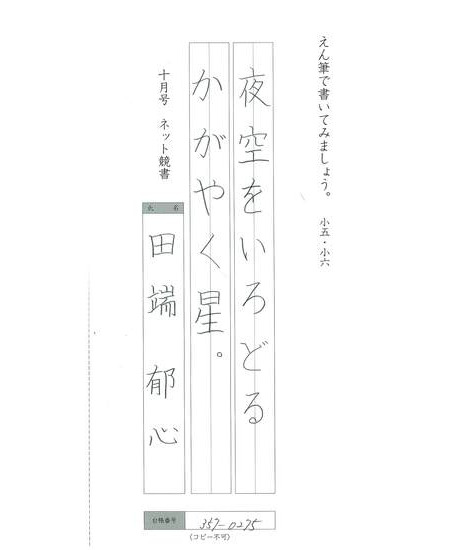 えん筆で書いてみましょう。 小五・小六
夜空をいろどる
かがやく星。
十月号 ネット競書
氏 名
田端 郁心
台帳番号
357-0275
(コピー不可)